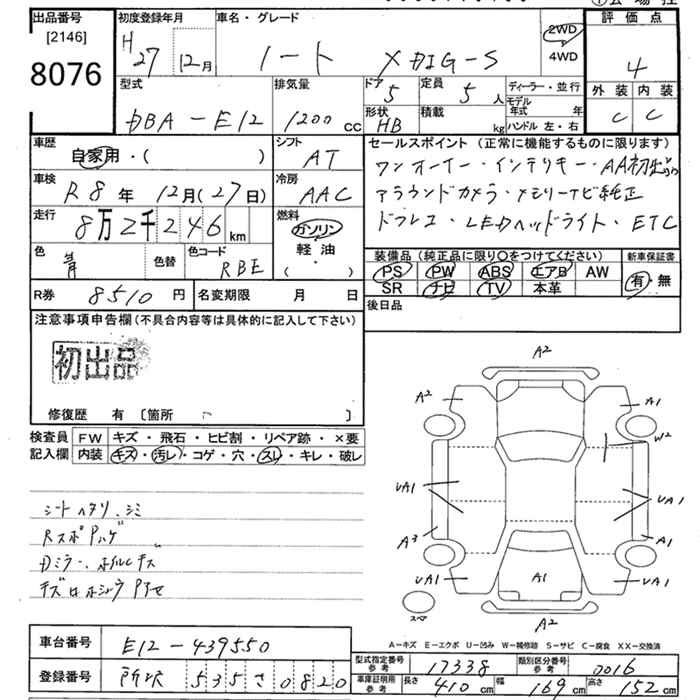 出品番号
[2146]
8076
初度登録年月
H 27 12月
車名・グレード
ノート X DIG-S
2WD
4WD
評価点
4
外装 内装
C C
型式
DBA-E12
排気量
1200 cc
ドア 5
形状 HB
定員 5 人
積載 kg
ディーラー・並行
モデル年式 年
ハンドル 左・右
車歴
自家用・( )
シフト
AT
車検
R8年 12月(27日)
冷房
AAC
走行
8万2千246km
燃料
ガソリン
軽・油
( )
色
青
色替
色コード
RBE
R券 8510円
名変期限 月 日
セールスポイント (正常に機能するものに限ります)
ワンオーナー・インテリキー・AA初出品
アラウンドカメラ・メモリーナビ純正
ドラレコ・LEDヘッドライト・ETC
装備品(純正品に限り○をつけてください)
PS PW ABS エアB AW
SR ナビ TV 本革
新車保証書
有・無
後日品
注意事項申告欄(不具合内容等は具体的に記入して下さい)
初出品
修復歴 有 〔箇所 〕
検査員記入欄
FW キズ・飛石・ヒビ割・リペア跡・×要
内装 キズ・汚レ・コゲ・穴・スレ・キレ・破レ
シートヘタリ、シミ
RスポPハゲ
Dミラー、ホイルキズ
A2
A2
A1
W2
UA1
UA1
A3
A1
UA1
A1
UA1
スペア
A2
A-キズ E-エクボ U-凹み W-補修跡 S-サビ C-腐食 XX-交換済
車台番号
E12-439550
登録番号
所沢 535 さ 0820
型式指定番号 参考 17338
類別区分番号 参考 0016
車庫証明用 参考
長さ 410cm 幅 169cm 高さ 152cm